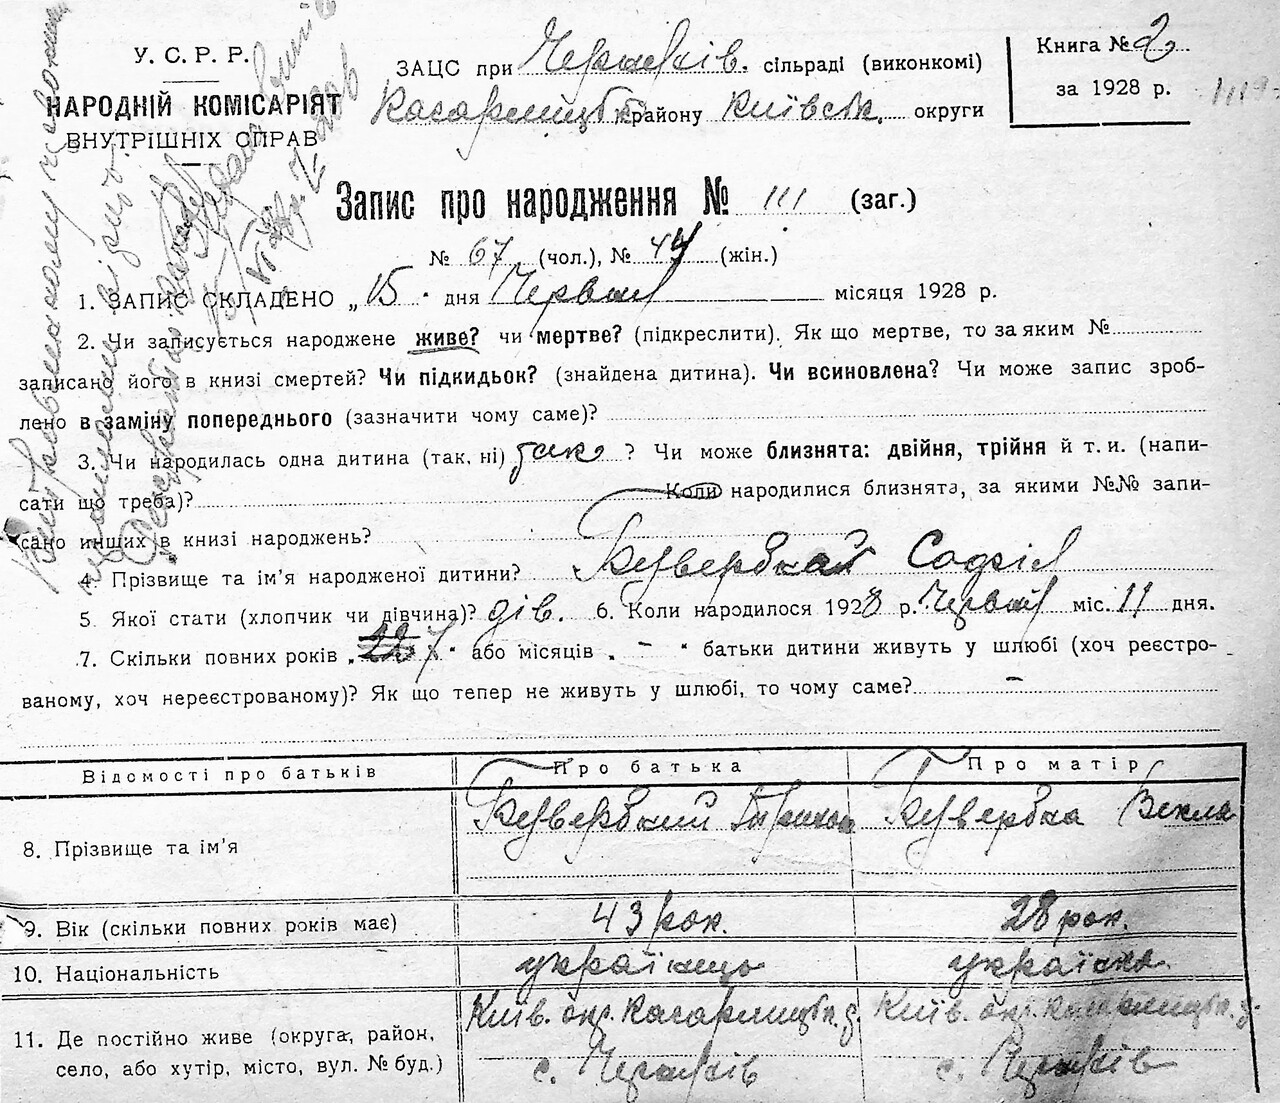 У.С.Р.Р.
НАРОДНІЙ КОМІСАРІЯТ
ВНУТРІШНІХ СПРАВ
ЗАЦС при сільраді (виконкомі)
Кагарлицьк. району Київськ. округи
Книга № 2
за 1928 р.
Запис про народження № 111 (заг.)
№ 67 (чол.), № 44 (жін.)
1. ЗАПИС СКЛАДЕНО „15" дня Червня місяця 1928 р.
2. Чи записується народжене живе? чи мертве? (підкреслити). Як що мертве, то за яким №
записано його в книзі смертей? Чи підкидьок? (знайдена дитина). Чи всиновлена? Чи може запис зроб-
лено в заміну попереднього (зазначити чому саме)?
3. Чи народилась одна дитина (так, ні) так ? Чи може близнята: двійня, трійня й т. и. (напи-
сати що треба)? Коли народилися близнята, за якими №№ запи-
сано инших в книзі народжень?
4. Прізвище та ім'я народженої дитини? Софія
5. Якої стати (хлопчик чи дівчина)? дів. 6. Коли народилося 1928 р. Червня міс. 11 дня.
7. Скільки повних років „ 7 " або місяців „ — " батьки дитини живуть у шлюбі (хоч реєстро-
ваному, хоч нереєстрованому)? Як що тепер не живуть у шлюбі, то чому саме? —
Відомості про батьків Про батька Про матір
8. Прізвище та ім'я Векла
9. Вік (скільки повних років має) 43 рок. 28 рок.
10. Національність українець українка
11. Де постійно живе (округа, район,
село, або хутір, місто, вул. № буд.)
Київ. окр. Кагарлицьк. р. Київ. окр. Кагарлицьк. р.
с. с.